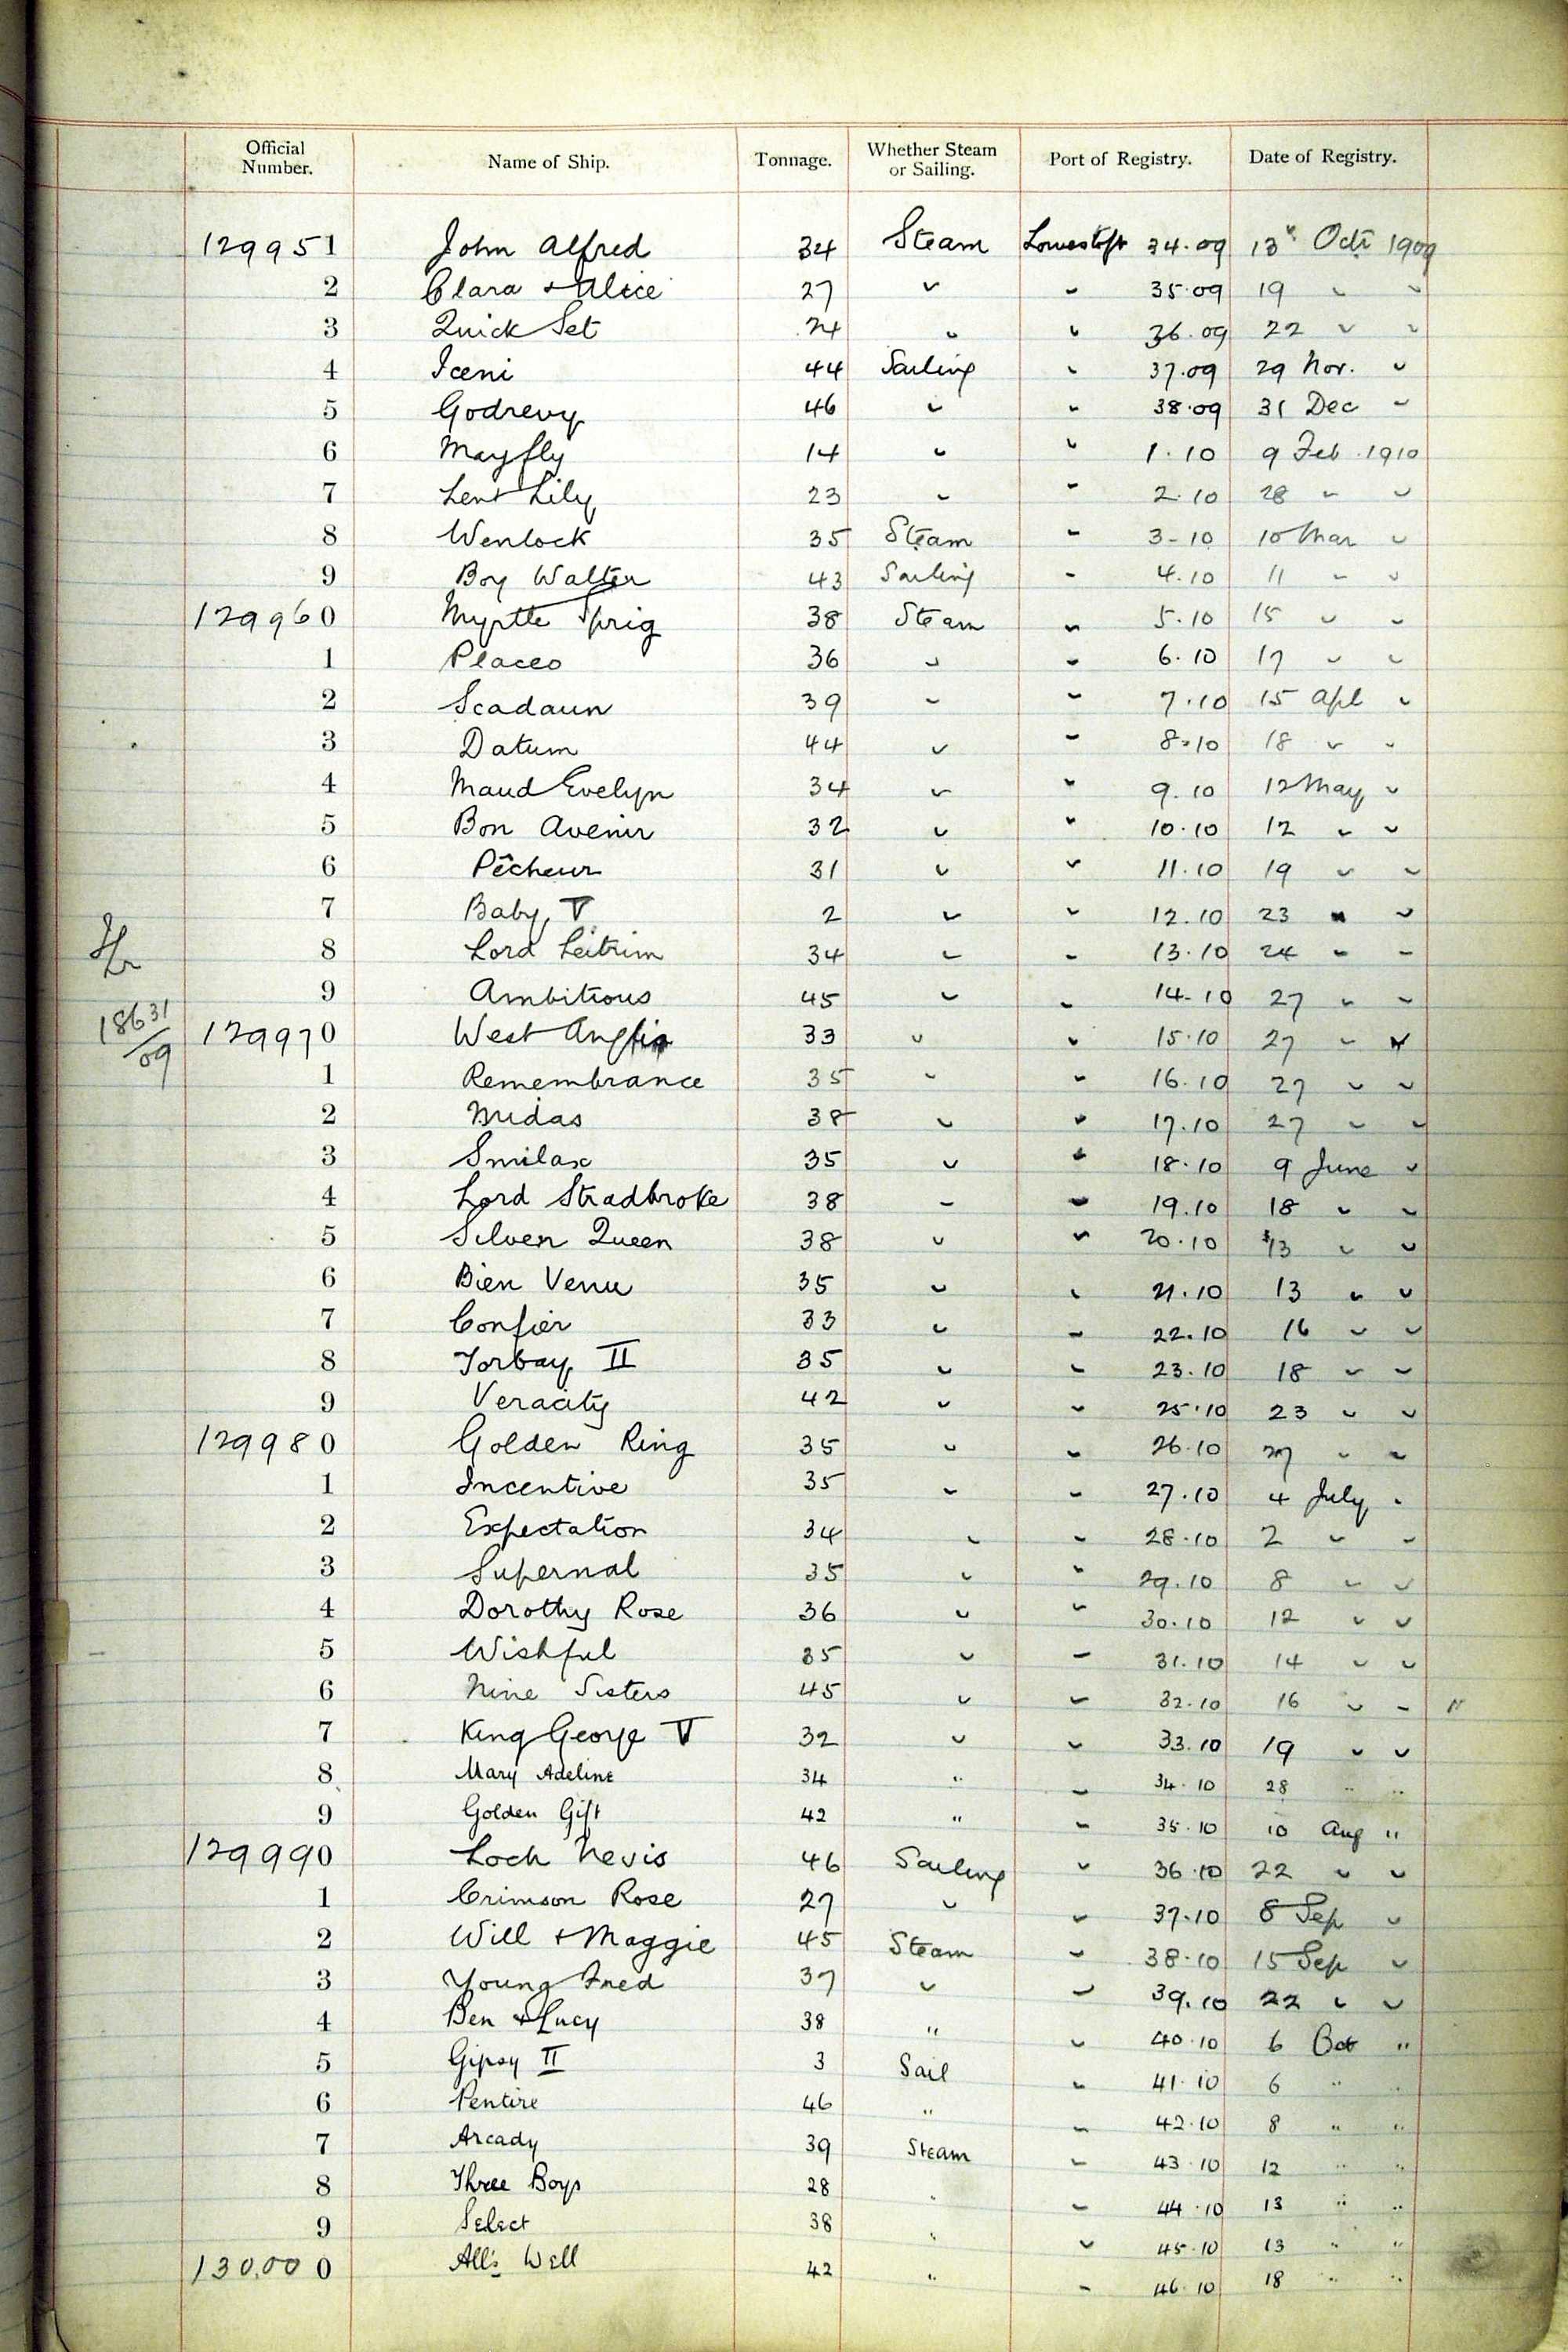 Official Number. Name of Ship. Tonnage. Whether Steam or Sailing. Port of Registry. Date of Registry.
129951 John Alfred 34 Steam Lowestoft 34.09 13 Oct 1909
2 Clara + Alice 27 " " 35.09 19 " "
3 Quick Set 24 " " 36.09 22 " "
4 Iceni 44 Sailing " 37.09 29 Nov. "
5 Godrevy 46 " " 38.09 31 Dec "
6 Mayfly 14 " " 1.10 9 Feb 1910
7 Lent Lily 23 " " 2.10 28 " "
8 Wenlock 35 Steam " 3-10 10 Mar "
9 Boy Walter 43 Sailing " 4.10 11 " "
129960 Myrtle Sprig 38 Steam " 5.10 15 " "
1 Placeo 36 " " 6.10 17 " "
2 Scadaun 39 " " 7.10 15 Apl "
3 Datum 44 " " 8.10 18 " "
4 Maud Evelyn 34 " " 9.10 12 May "
5 Bon Avenir 32 " " 10.10 12 " "
6 Pêcheur 31 " " 11.10 19 " "
7 Baby V 2 " " 12.10 23 " "
8 Lord Leitrim 34 " " 13.10 24 " "
9 Ambitious 45 " " 14-10 27 " "
18631/09 129970 West Anglia 33 " " 15.10 27 "
1 Remembrance 35 " " 16.10 27 " "
2 Midas 38 " " 17.10 27 " "
3 Smilax 35 " " 18.10 9 June "
4 Lord Stradbroke 38 " " 19.10 18 " "
5 Silver Queen 38 " " 20.10 13 " "
6 Bien Venu 35 " " 21.10 13 " "
7 Confier 33 " " 22.10 16 " "
8 Torbay II 35 " " 23.10 18 " "
9 Veracity 42 " " 25.10 23 " "
129980 Golden Ring 35 " " 26.10 27 " "
1 Incentive 35 " " 27.10 4 July "
2 Expectation 34 " " 28.10 2 " "
3 Supernal 35 " " 29.10 8 " "
4 Dorothy Rose 36 " " 30.10 12 " "
5 Wishful 35 " " 31.10 14 " "
6 Nine Sisters 45 " " 32.10 16 " " "
7 King George V 32 " " 33.10 19 " "
8 Mary Adeline 34 " " 34.10 28 " "
9 Golden Gift 42 " " 35.10 10 Aug "
129990 Loch Nevis 46 Sailing " 36.10 22 " "
1 Crimson Rose 27 " " 37.10 8 Sep "
2 Will + Maggie 45 Steam " 38.10 15 Sep "
3 Young Fred 37 " " 39.10 22 " "
4 Ben + Lucy 38 " " 40.10 6 Oct "
5 Gipsy II 3 Sail " 41.10 6 " "
6 Pentire 46 " " 42.10 8 " "
7 Arcady 39 Steam " 43.10 12 " "
8 Three Boys 28 " " 44.10 13 " "
9 Select 38 " " 45.10 13 " "
130,000 All's Well 42 " " 46.10 18 " "